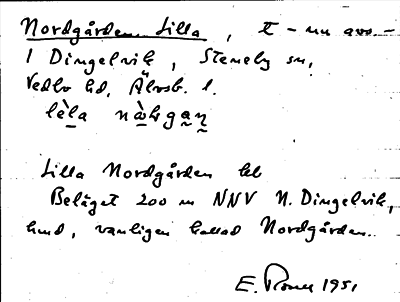 Nordgården Lilla, t - nu avs. -
1 Dingelvik, Steneby sn,
Vedbo hd, Älvsb. l.
lèla
Lilla Nordgården
Beläget 200 m NNV N. Dingelvik,
kallad Nordgården.
E. 1951